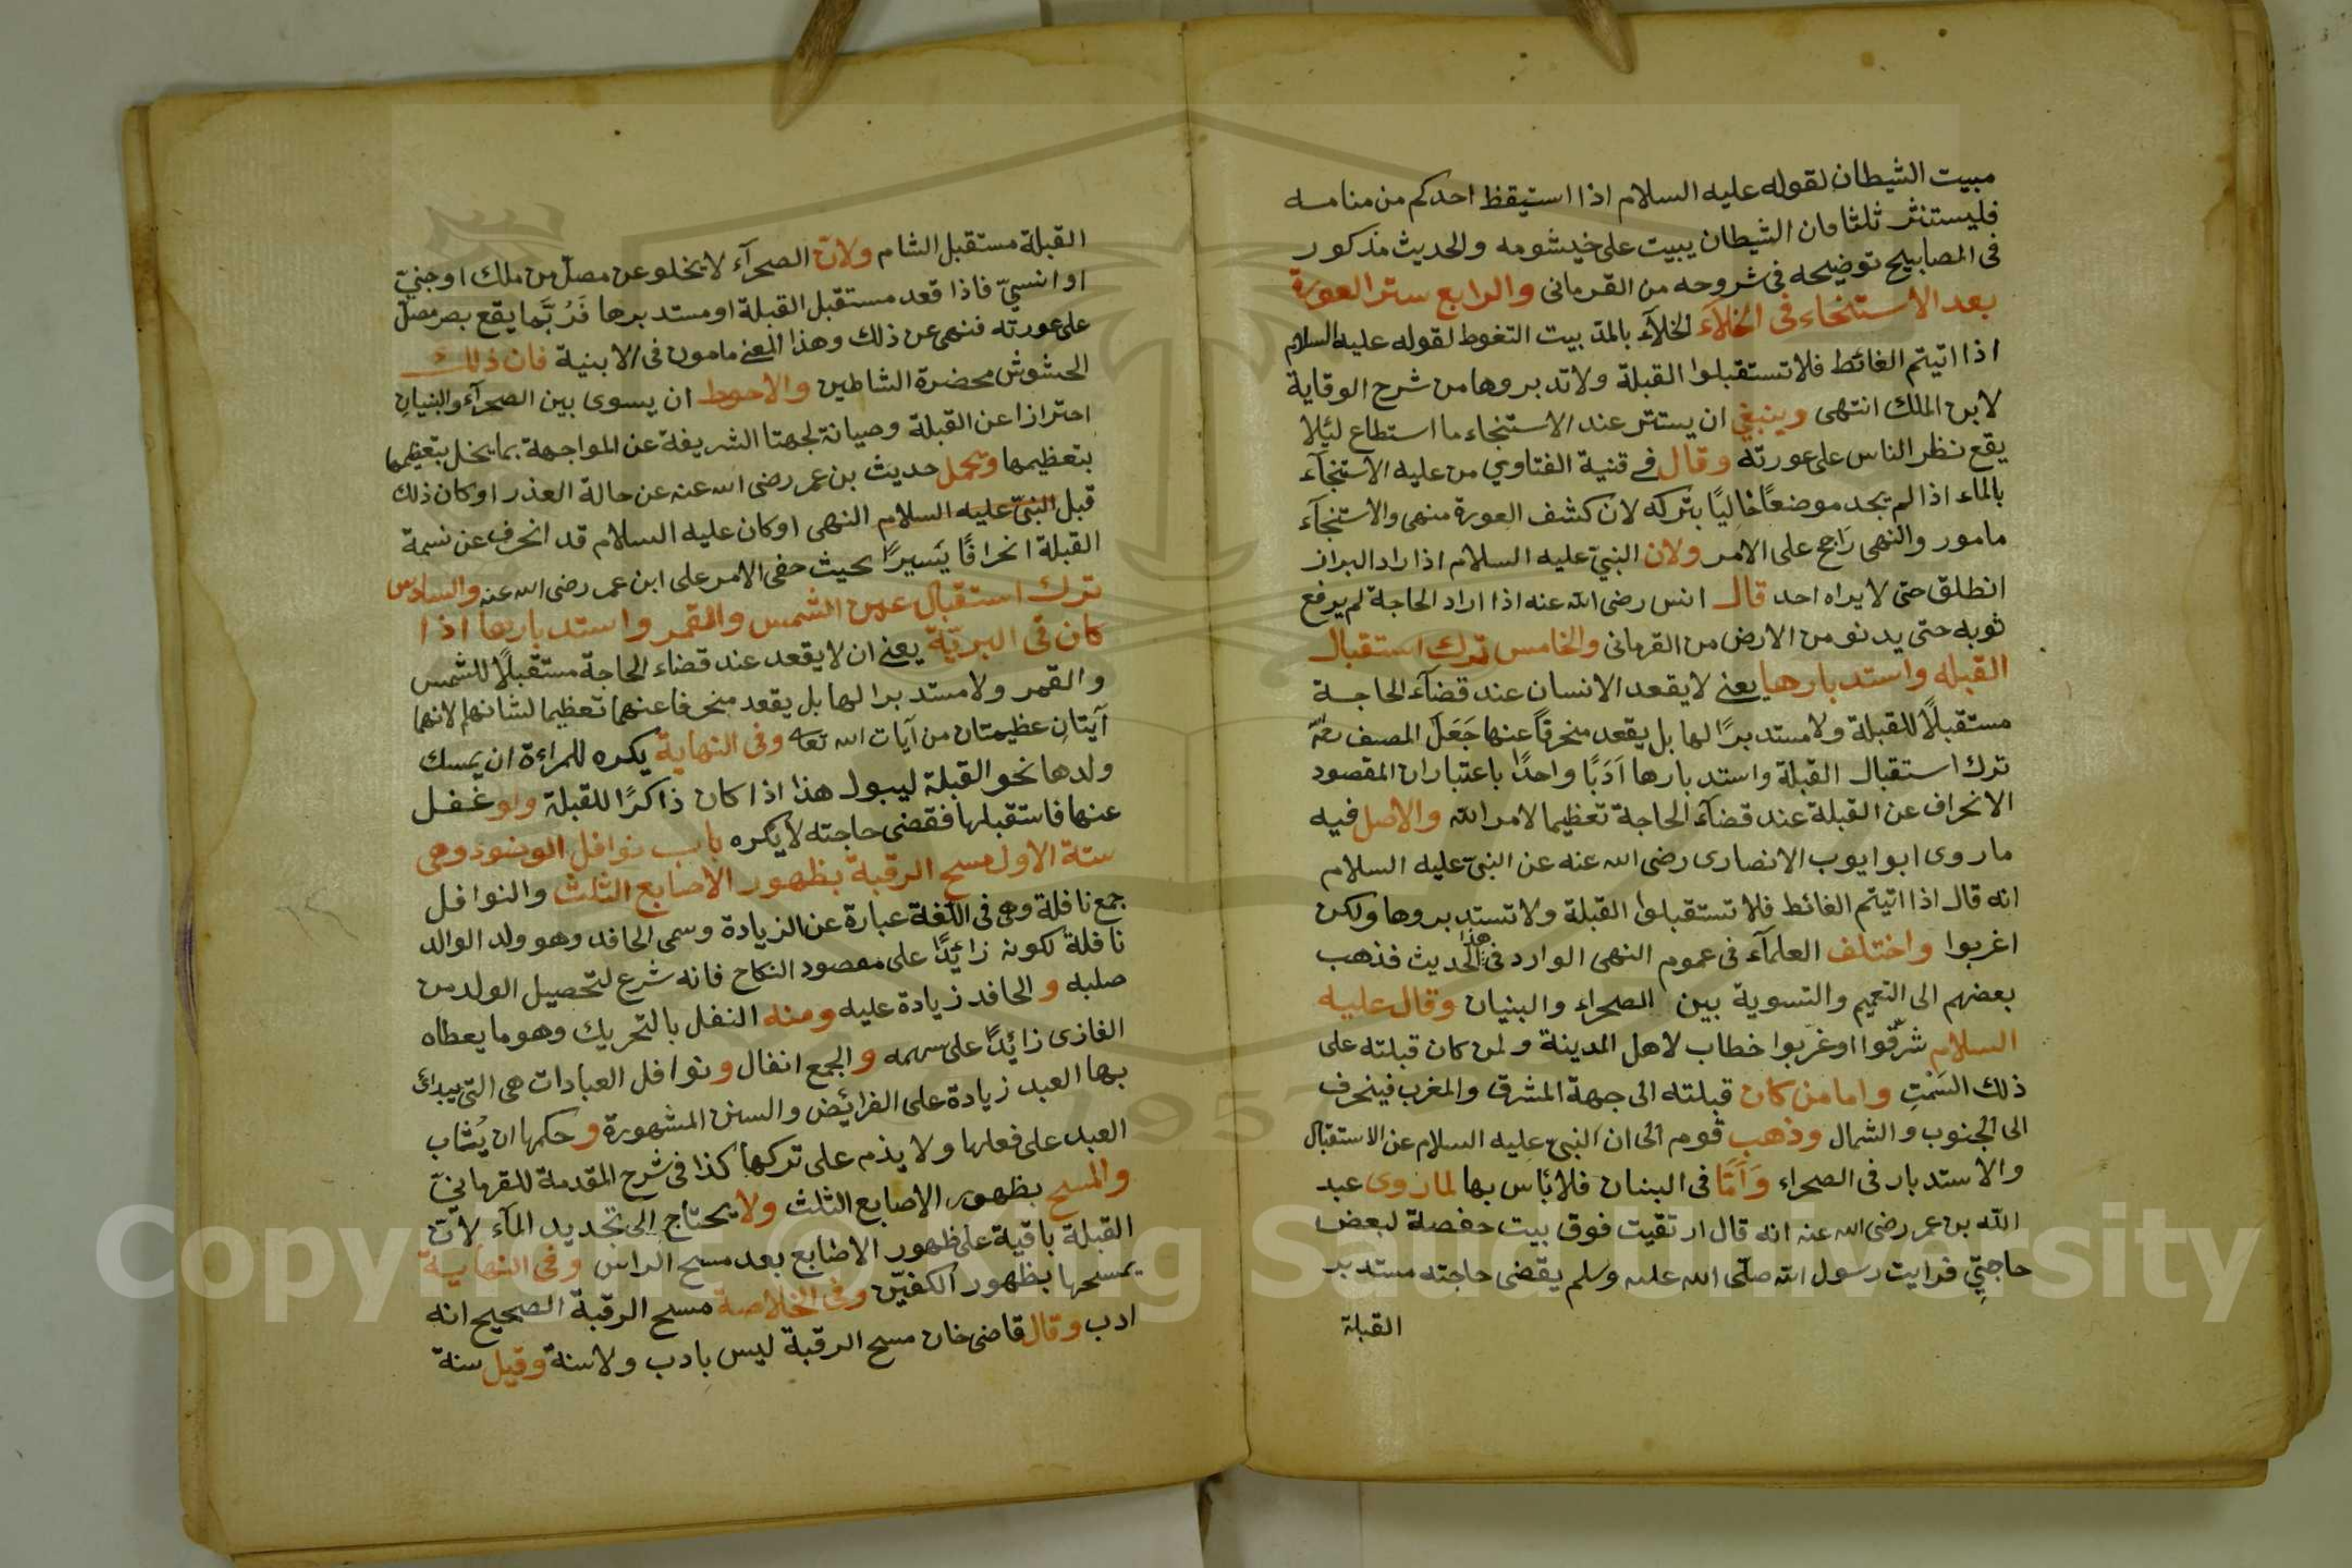 مبيت الشيطان لقوله عليه السلام اذا استيقظ احدكم من منامه
فليستنثر ثلثا فان الشيطان يبيت على خيشومه والحديث مذكور
فى المصابيح توضيحه فى شروحه من القرمانى والرابع ستر العورة
بعد الاستنجاء فى الخلآء الخلآء بالمد بيت التغوط لقوله عليه السلام
اذا اتيتم الغائط فلا تستقبلوا القبلة ولا تدبروها من شرح الوقاية
لابن الملك انتهى وينبغى ان يستتر عند الاستنجاء ما استطاع لئلا
يقع نظر الناس على عورته وقال فى قنية الفتاوي من عليه الاستنجآء
بالماء اذا لم يجد موضعًا خاليًا يتركه لان كشف العورة منهى والاستنجآء
مامور والنهى راجح على الامر ولان النبىّ عليه السلام اذا راد البراز
انطلق حتى لا يراه احد قال انس رضى الله عنه اذا اراد الحاجة لم يرفع
ثوبه حتى يدنو من الارض من القرمانى والخامس ترك استقبال
القبله واستدبارها يعنى لا يقعد الانسان عند قضآء الحاجة
مستقبلًا للقبلة ولا مستدبرًا لها بل يقعد منحرفًا عنها جَعَلَ المصنف
ترك استقبال القبلة واستدبارها اَدَبًا واحدًا باعتبار ان المقصود
الانحراف عن القبلة عند قضآء الحاجة تعظيما لامر الله والاصل فيه
ما روى ابو ايوب الانصارى رضى الله عنه عن النبى عليه السلام
انه قال اذا اتيتم الغائط فلا تستقبلوا القبلة ولا تستدبروها ولكن
اغربوا واختلف العلمآء فى عموم النهى الوارد فى هذا الحديث فذهب
بعضهم الى التعميم والتسوية بين الصحراء والبنيان وقال عليه
السلام شرّقوا او غرّبوا خطاب لاهل المدينة ولمن كان قبلته على
ذلك السَمْتِ واما من كان قبلته الى جهة المشرق والمغرب فينحرف
الى الجنوب والشمال وذهب قوم الى ان النبى عليه السلام عن الاستقبال
والاستدبار فى الصحراء وَاَمّا فى البنيان فلا بَاس بها لما روى عبد
الله بن عمر رضى الله عنه انه قال ارتقيت فوق بيت حفصة لبعض
حاجتِى فرايت رسول الله صلّى الله عليه وسلم يقضى حاجته مستدبر
القبلة
القبلة مستقبل الشام ولانّ الصحرآء لا يخلو عن مصلّ من ملك او جنىّ
او انسىّ فاذا قعد مستقبل القبلة او مستدبرها فَرُبَّما يقع بصر مصلّ
على عورته فنهى عن ذلك وهذا المعنى مامون فى الابنية فان ذلك
الحشوش محضرة الشاطين والاحوط ان يسوى بين الصحرآء والبنيان
احترازا عن القبلة وصيانة لجهتها الشريفة عن المواجهة بما يخل بتعظيمها
بتعظيمها ويحمل حديث بن عمر رضى الله عنه عن حالة العذر او كان ذلك
قبل النبىّ عليه السلام النهى او كان عليه السلام قد انحرف عن نسمة
القبلة انحرافًا يَسيرًا بحيث خفى الامر على ابن عمر رضى الله عنه والسادس
ترك استقبال عين الشمس والقمر واستدبارها اذا
كان فى البريّة يعنى ان لا يقعد عند قضاء الحاجة مستقبلًا للشمس
والقمر ولا مستدبرا لها بل يقعد منحرفا عنهما تعظيما لشانهم لانهما
آيتانِ عظيمتان من آيات الله تعا وفى النهاية يكره للمراءة ان يمسك
ولدها نحو القبلة ليبول هذا اذا كان ذاكرًا للقبلة ولو غفل
عنها فاستقبلها فقضى حاجته لا يكره باب نوافل الوضوء وهى
ستة الاول مسح الرقبة بظهور الاصابع الثلث والنوافل
جمع نافلة وهى فى اللغة عبارة عن الزيادة وسمى الحافد وهو ولد الوالد
نافلة لكونه زائدًا على مقصود النكاح فانه شرع لتحصيل الولد من
صلبه و الحافد زيادة عليه ومنه النفل بالتحريك وهو ما يعطاه
الغازى زائدًا على سهمه و الجمع انفال ونوافل العبادات هى التى يبدائ
بها العبد زيادة على الفرائض والسنن المشهورة و حكمها ان يُثاب
العبد على فعلها ولا يذم على تركها كذا فى شرح المقدمة للقرمانىّ
والمسح بظهور الاصابع الثلث ولا يحتاج الى تجديد المآء لانّ
القبلة باقية على ظهور الاصابع بعد مسح الراس وفى النهاية
يمسحها بظهور الكفيّن وفى الخلاصة مسح الرقبة الصحيح انه
ادب وقال قاضى خان مسح الرقبة ليس بادب ولا سنة وقيل سنة
Copyright © King Saud University
1957